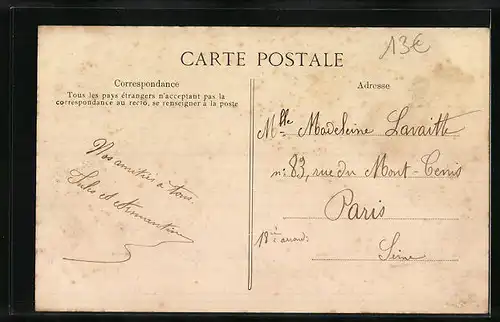 13€
CARTE POSTALE
Correspondance
Tous les pays étrangers n'acceptant pas la
correspondance au recto, se renseigner à la poste
Nos amitiés à tous
Jules et Armantine
Adresse
Mlle Madeleine Lavaitte
n: 83, rue du Mont-Cenis
Paris
18e arrond:
Seine